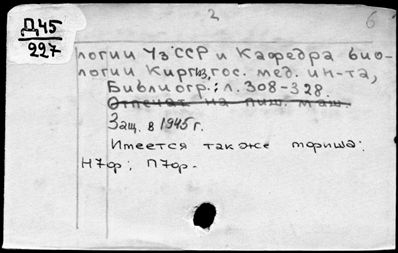 2
6
Д45
227
логии УзССР и Кафедра био-
логии Киргиз. гос. мед. ин-та,
Библиогр.: л. 308-328.
Отпечат на пиш. маш.
Защ. в 1945 г.
Имеется также тфиша:
Н7ф; П7ф.